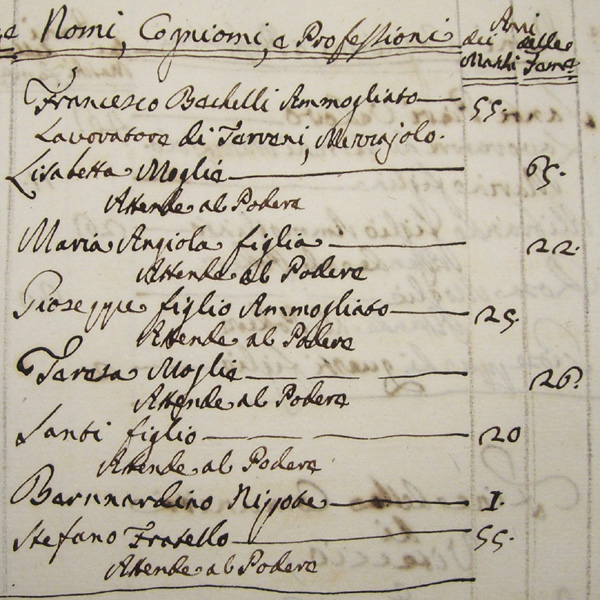 e Nomi, Cogniomi, e Professioni
Anni dei Maschi
Anni delle Fem.e
Francesco Bachelli Ammogliato 55.
Lavoratore di Tarreni, Mezzajolo.
Lisabetta Moglie 65.
Attende al Podere
Maria Angiola figlia 22.
Attende al Podere
Gioseppe figlio Ammogliato 25.
Attende al Podere
Taresa Moglie 26.
Attende al Podere
Santi figlio 20
Attende al Podere
Barnnardino Nippote 1.
Stefano Fratello 55.
Attende al Podere